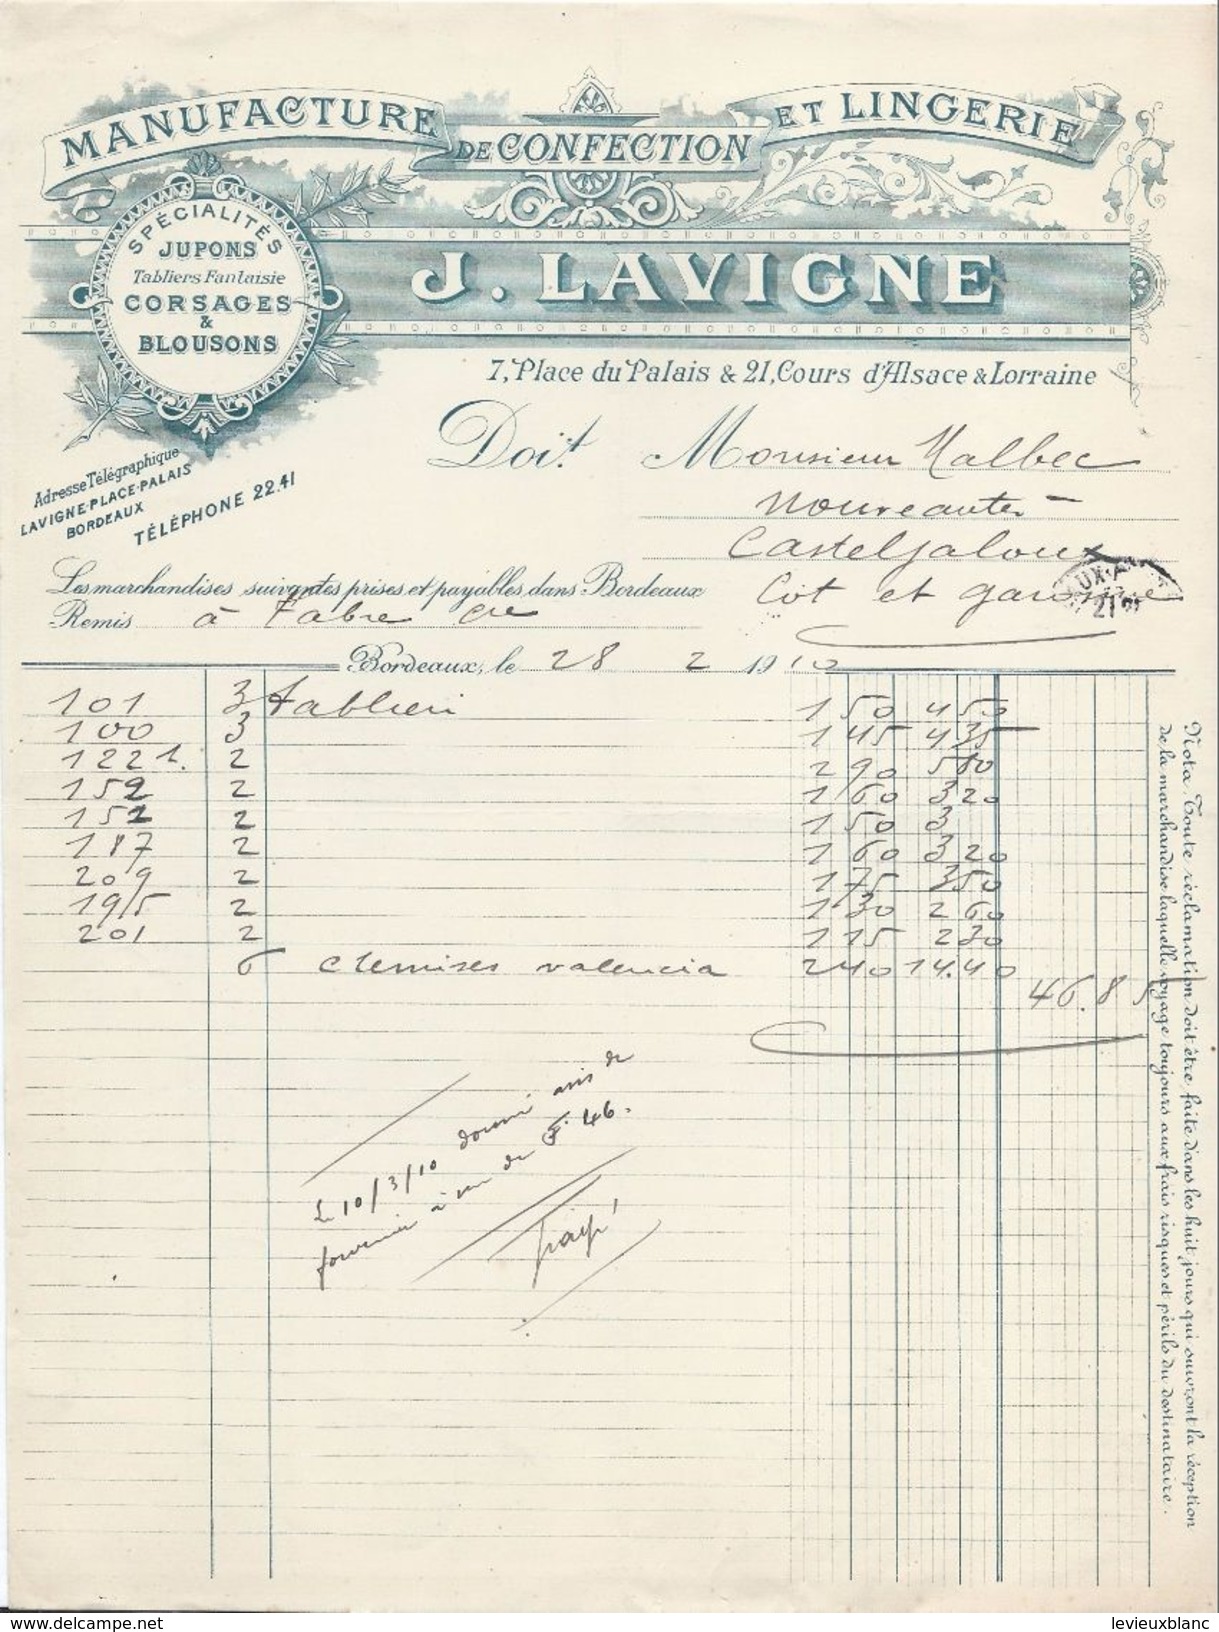 MANUFACTURE DE CONFECTION ET LINGERIE
SPÉCIALITÉS
JUPONS
Tabliers Fantaisie
CORSAGES
&
BLOUSONS
J. LAVIGNE
7, Place du Palais & 21, Cours d'Alsace & Lorraine
Adresse Télégraphique
LAVIGNE-PLACE-PALAIS
BORDEAUX
TÉLÉPHONE 22.41
Doit Monsieur Malbec
Nouveautés
Casteljaloux
Lot et garonne
Les marchandises suivantes prises et payables dans Bordeaux
Remis à Fabre
Bordeaux, le 28 2 1910
101 3 tabliers 1 50 4 50
100 3 1 45 4 35
1221. 2 2 90 5 80
159 2 1 60 3 20
152 2 1 50 3
187 2 1 60 3 20
209 2 1 75 3 50
195 2 1 30 2 60
201 2 1 15 2 30
6 chemises valencia 2 40 14.40
46.85
Le 10/3/10 donné avis de
fournir à vue de F. 46.
payé
Nota. Toute réclamation doit être faite dans les huit jours qui suivront la réception
de la marchandise laquelle voyage toujours aux frais risques et périls du destinataire.
levieuxblanc